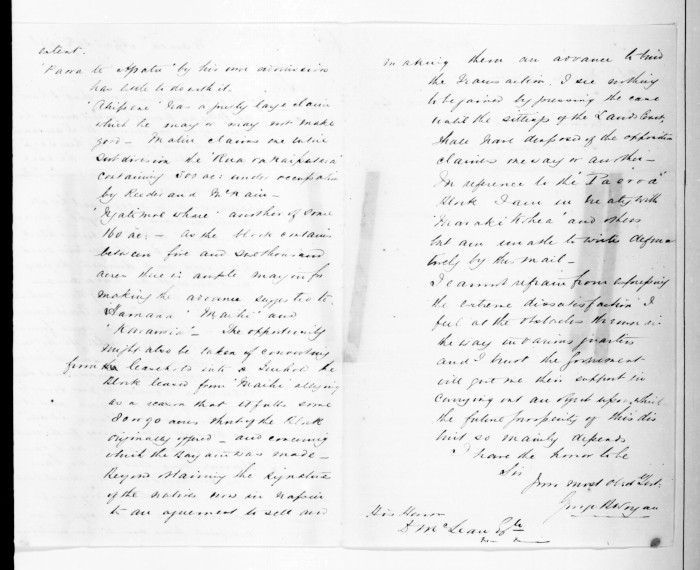 extent.
"Paora te Apatu" by his own admission
has little to do with it.
has a pretty large claim
which he may or may not make
good — claims one entire
Subdivision the
containing 308 ac: under occupation
by Reeder and McKain —
another of some
160 ac: — as the block contains
between five and six thousand
acres there is ample margin for
making the advance suggested to
"Hamana" "Maihi" and
The opportunity
might also be taken of converting
from leasehold into a freehold the
block leased from "Maihi" alleging
as a reason that it falls some
80 or 90 acres short of the block
originally offered — and concerning
which the bargain was made —
Beyond obtaining the signature
of the natives now in Napier
to an agreement to sell and
making them an advance to bind
the transaction, I see nothing
to be gained by pressing the case
until the sittings of the Lands Court
shall have disposed of the opposition
claims one way or another —
In reference to the
block I am in treaty with
and others
but am unable to write defini-
tively by this mail —
I cannot refrain from expressing
the extreme dissatisfaction I
feel at the obstacles thrown in
the way in various quarters
and I trust the Government
will give me their support in
carrying out an object upon which
the future prosperity of this dis
trict so mainly depends
I have the honor to be
Sir
Your most obed Servt:
His Honor
D McLean Esqre